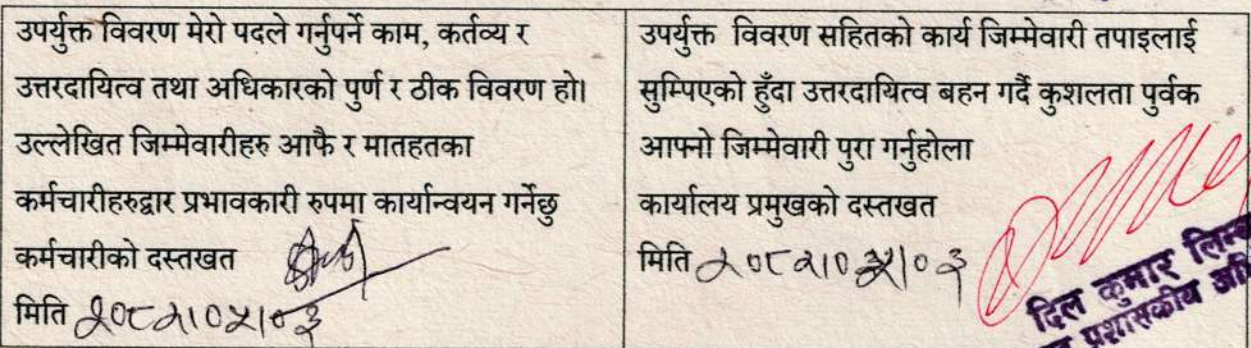 उपर्युक्त विवरण मेरो पदले गर्नुपर्ने काम, कर्तव्य र
उत्तरदायित्व तथा अधिकारको पुर्ण र ठीक विवरण हो।
उल्लेखित जिम्मेवारीहरु आफै र मातहतका
कर्मचारीहरुद्वार प्रभावकारी रुपमा कार्यान्वयन गर्नेछु
कर्मचारीको दस्तखत
मिति २०८२।०५।०३
उपर्युक्त विवरण सहितको कार्य जिम्मेवारी तपाइलाई
सुम्पिएको हुँदा उत्तरदायित्व बहन गर्दै कुशलता पुर्वक
आफ्नो जिम्मेवारी पुरा गर्नुहोला
कार्यालय प्रमुखको दस्तखत
मिति २०८२।०५।०३
दिल कुमार
प्रशासकीय